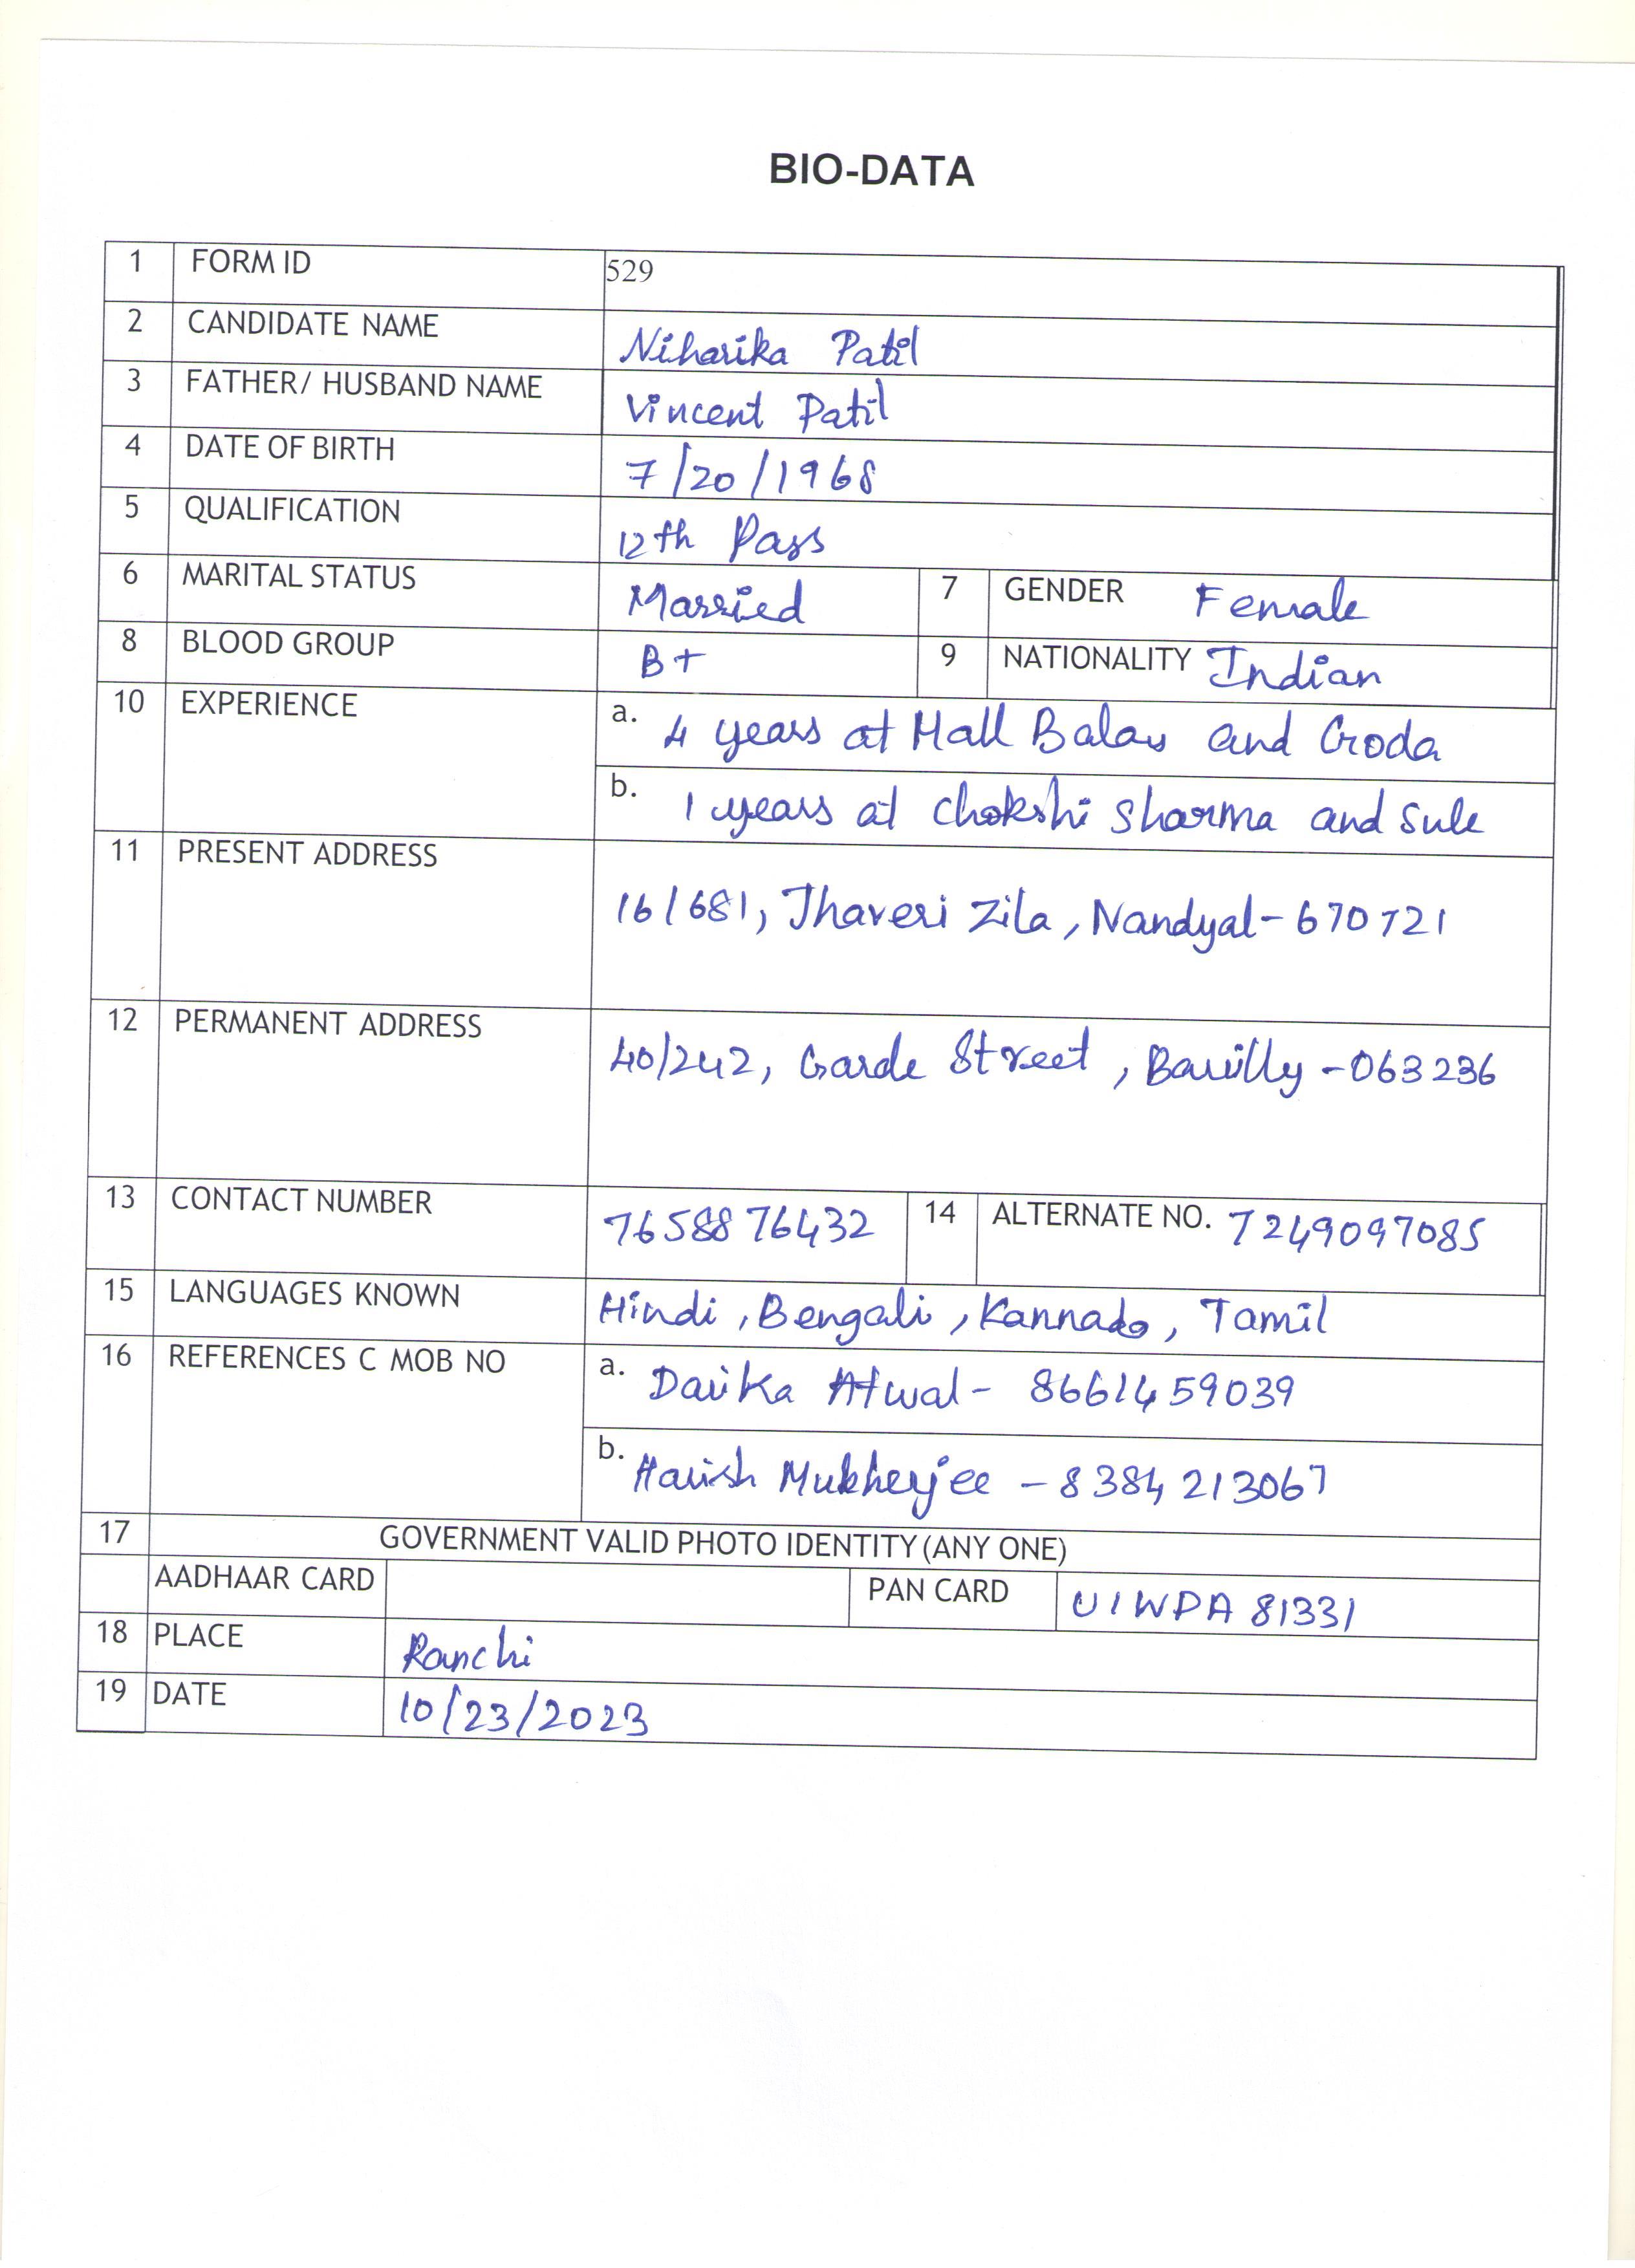 BIO-DATA
1 FORM ID 529
2 CANDIDATE NAME Niharika Patil
3 FATHER/ HUSBAND NAME Vincent Patil
4 DATE OF BIRTH 7/20/1968
5 QUALIFICATION 12th Pass
6 MARITAL STATUS Married 7 GENDER Female
8 BLOOD GROUP B+ 9 NATIONALITY Indian
10 EXPERIENCE a. 4 years at Mall Balay and Goda
b. 1 years at Chokshi Sharma and Sule
11 PRESENT ADDRESS
16/681, Jhaveri Zila, Nandyal-670721
12 PERMANENT ADDRESS
40/242, Garde Street, -063236
13 CONTACT NUMBER 7658876432 14 ALTERNATE NO. 7249097085
15 LANGUAGES KNOWN Hindi, Bengali, Kannada, Tamil
16 REFERENCES C MOB NO a. Darika Atwal- 8661459039
b. Harish Mukherjee - 8384213067
17 GOVERNMENT VALID PHOTO IDENTITY (ANY ONE)
AADHAAR CARD PAN CARD UIWPA8133I
18 PLACE Ranchi
19 DATE 10/23/2023